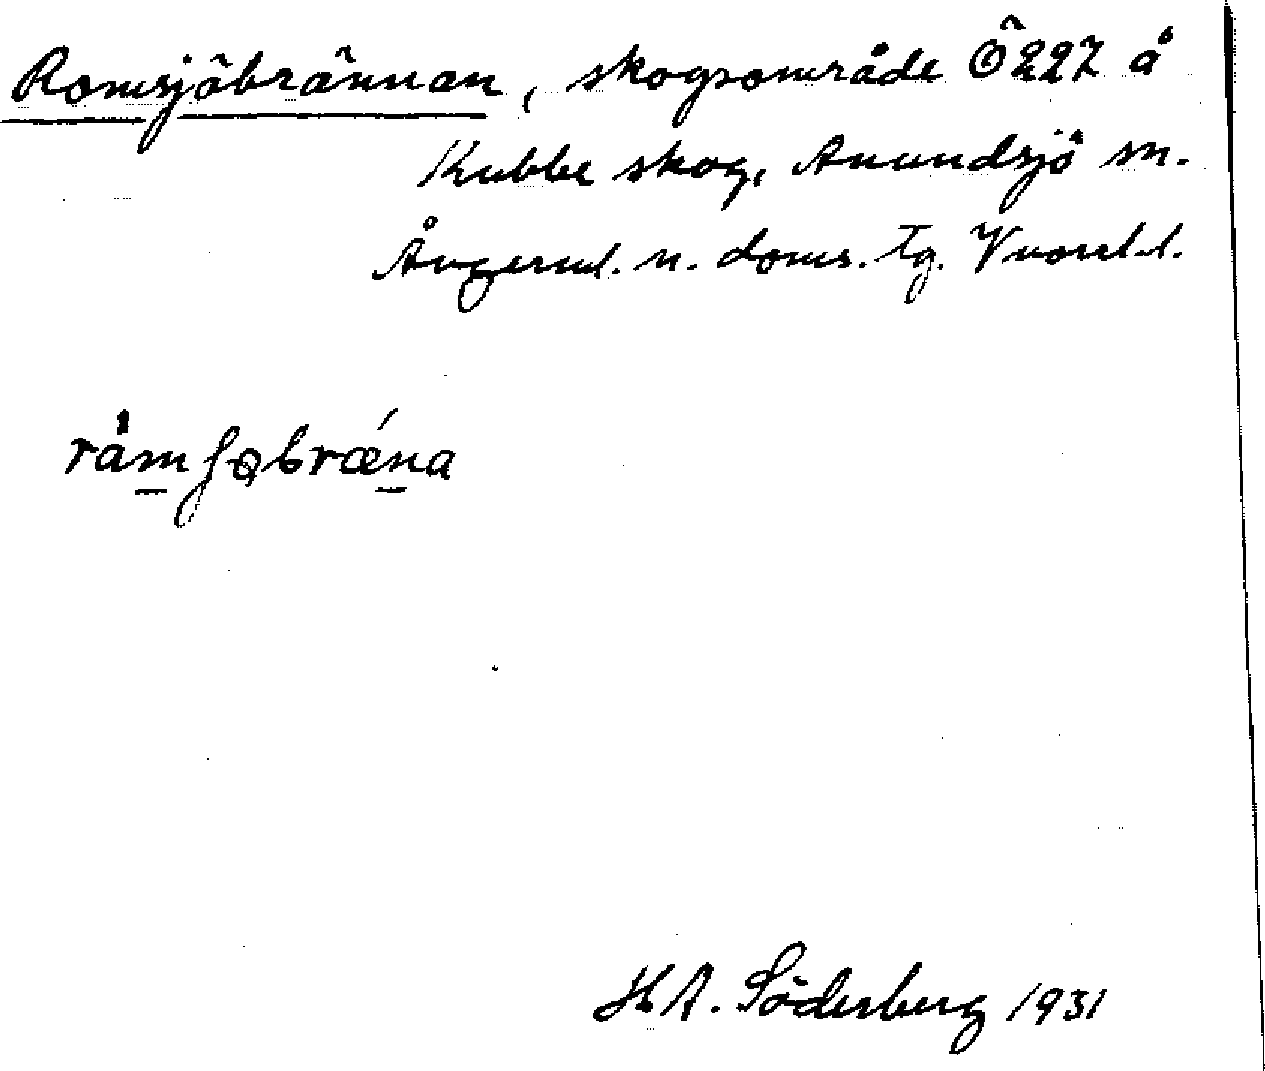 Romsjöbrännan, skogsområde Ö227 å
Kubbe skog, Anundsjö sn.
Ångerml. n. doms. tg. Vnorrl. l.
råmʃøbrǽna
H.A. Söderberg 1931